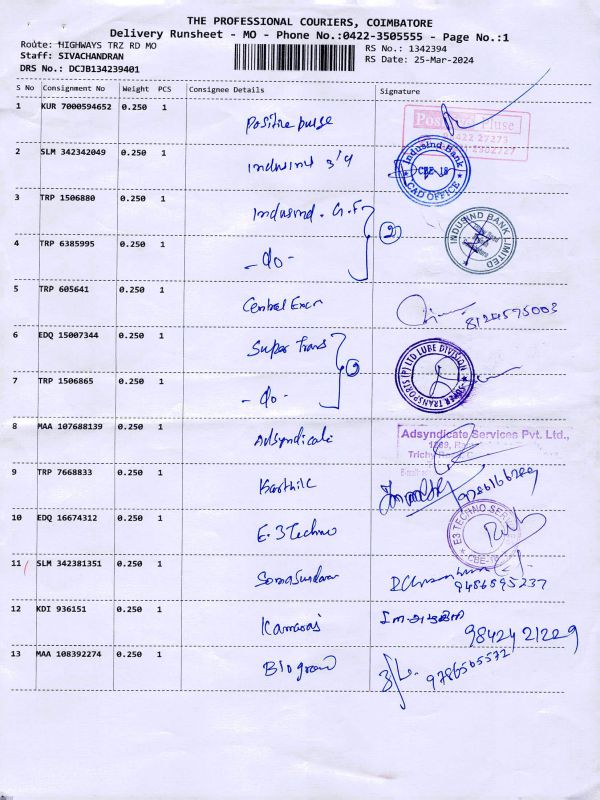 THE PROFESSIONAL COURIERS, COIMBATORE
Delivery Runsheet - MO - Phone No.:0422-3505555 - Page No.:1
Route: HIGHWAYS TRZ RD MO
RS No.: 1342394
Staff: SIVACHANDRAN
RS Date: 25-Mar-2024
DRS No.: DCJB134239401
S No Consignment No Weight PCS Consignee Details Signature
1 KUR 7000594652 0.250 1 Positive pulse
2 SLM 342342049 0.250 1 Indusind
IndusInd Bank
CBE-18
CAD OFFICE
3 TRP 1506880 0.250 1 Indusind. G.F
2
INDUSIND BANK LIMITED
4 TRP 6385995 0.250 1 -do-
5 TRP 605641 0.250 1 Central Excr
8124575003
6 EDQ 15007344 0.250 1 Super Trans
SUPER TRANSPORTS (P) LTD LUBE DIVISION
7 TRP 1506865 0.250 1 -do-
8 MAA 107688139 0.250 1 Adsyndicate
Adsyndicate Services Pvt. Ltd.,
9 TRP 7668833 0.250 1 Karthik
10 EDQ 16674312 0.250 1 E.3 Techno
E3 TECHNO SERV
11 SLM 342381351 0.250 1 Somasundaram
9486595237
12 KDI 936151 0.250 1 Kamaraj
9842421229
13 MAA 108392274 0.250 1 Biogreen
9786505572